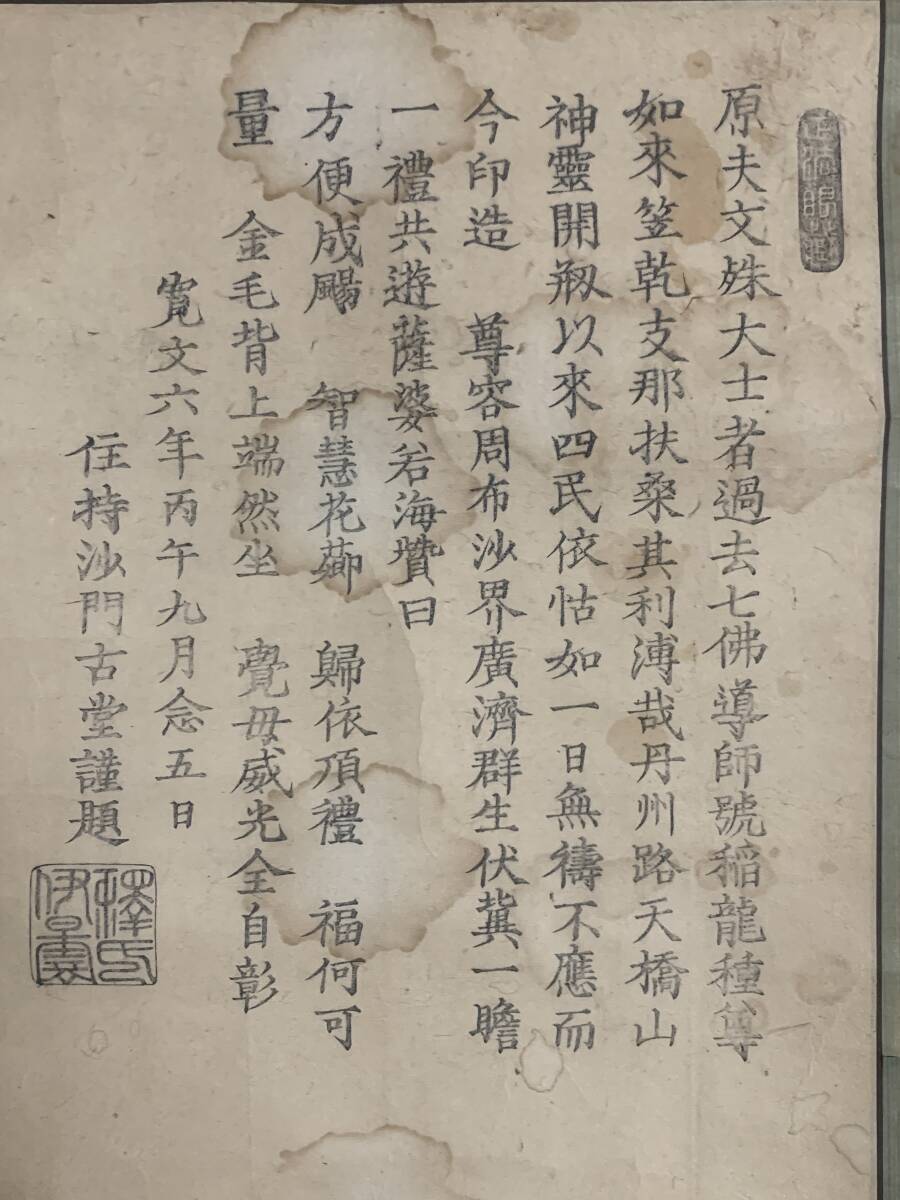 原夫文殊大士者過去七佛導師號稲龍種尊
如來笠乾支那扶桑其利溥哉丹州路天橋山
神靈開剏以來四民依怙如一日無禱不應而
今印造　尊容周布沙界廣濟群生伏冀一瞻
一禮共遊薩婆若海贊曰
方便成颺　智慧花薌　歸依頂禮　福何可
量　金毛背上端然坐　覺毋威光全自彰
寬文六年丙午九月念五日
住持沙門古堂謹題